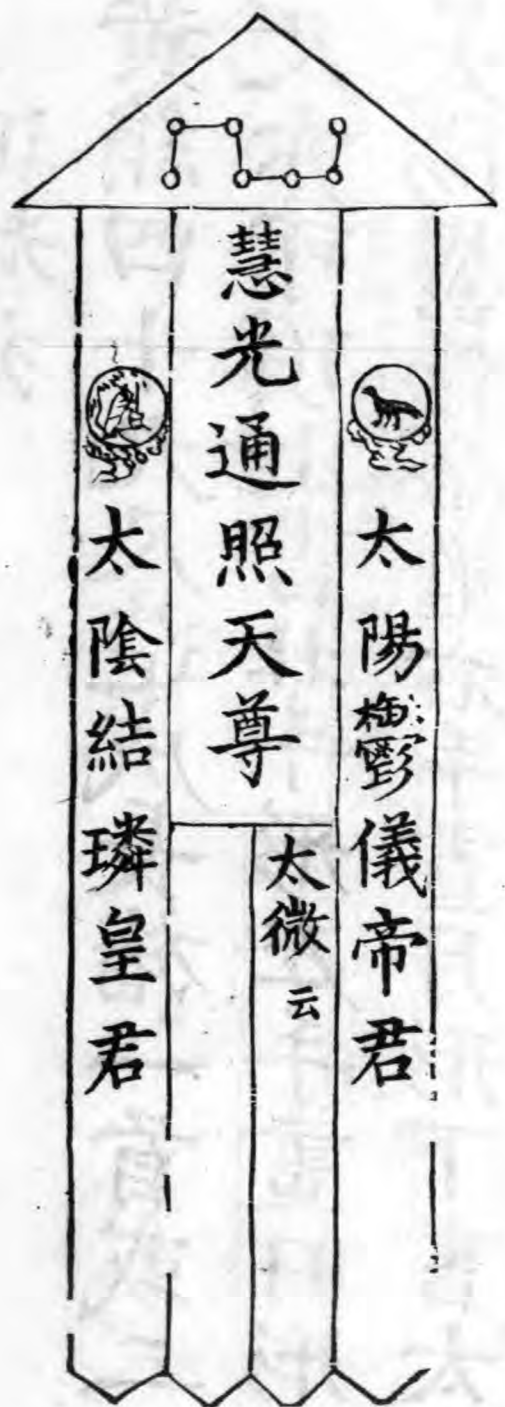 太陽鬱儀帝君
慧光通照天尊
太微云
太陰結璘皇君